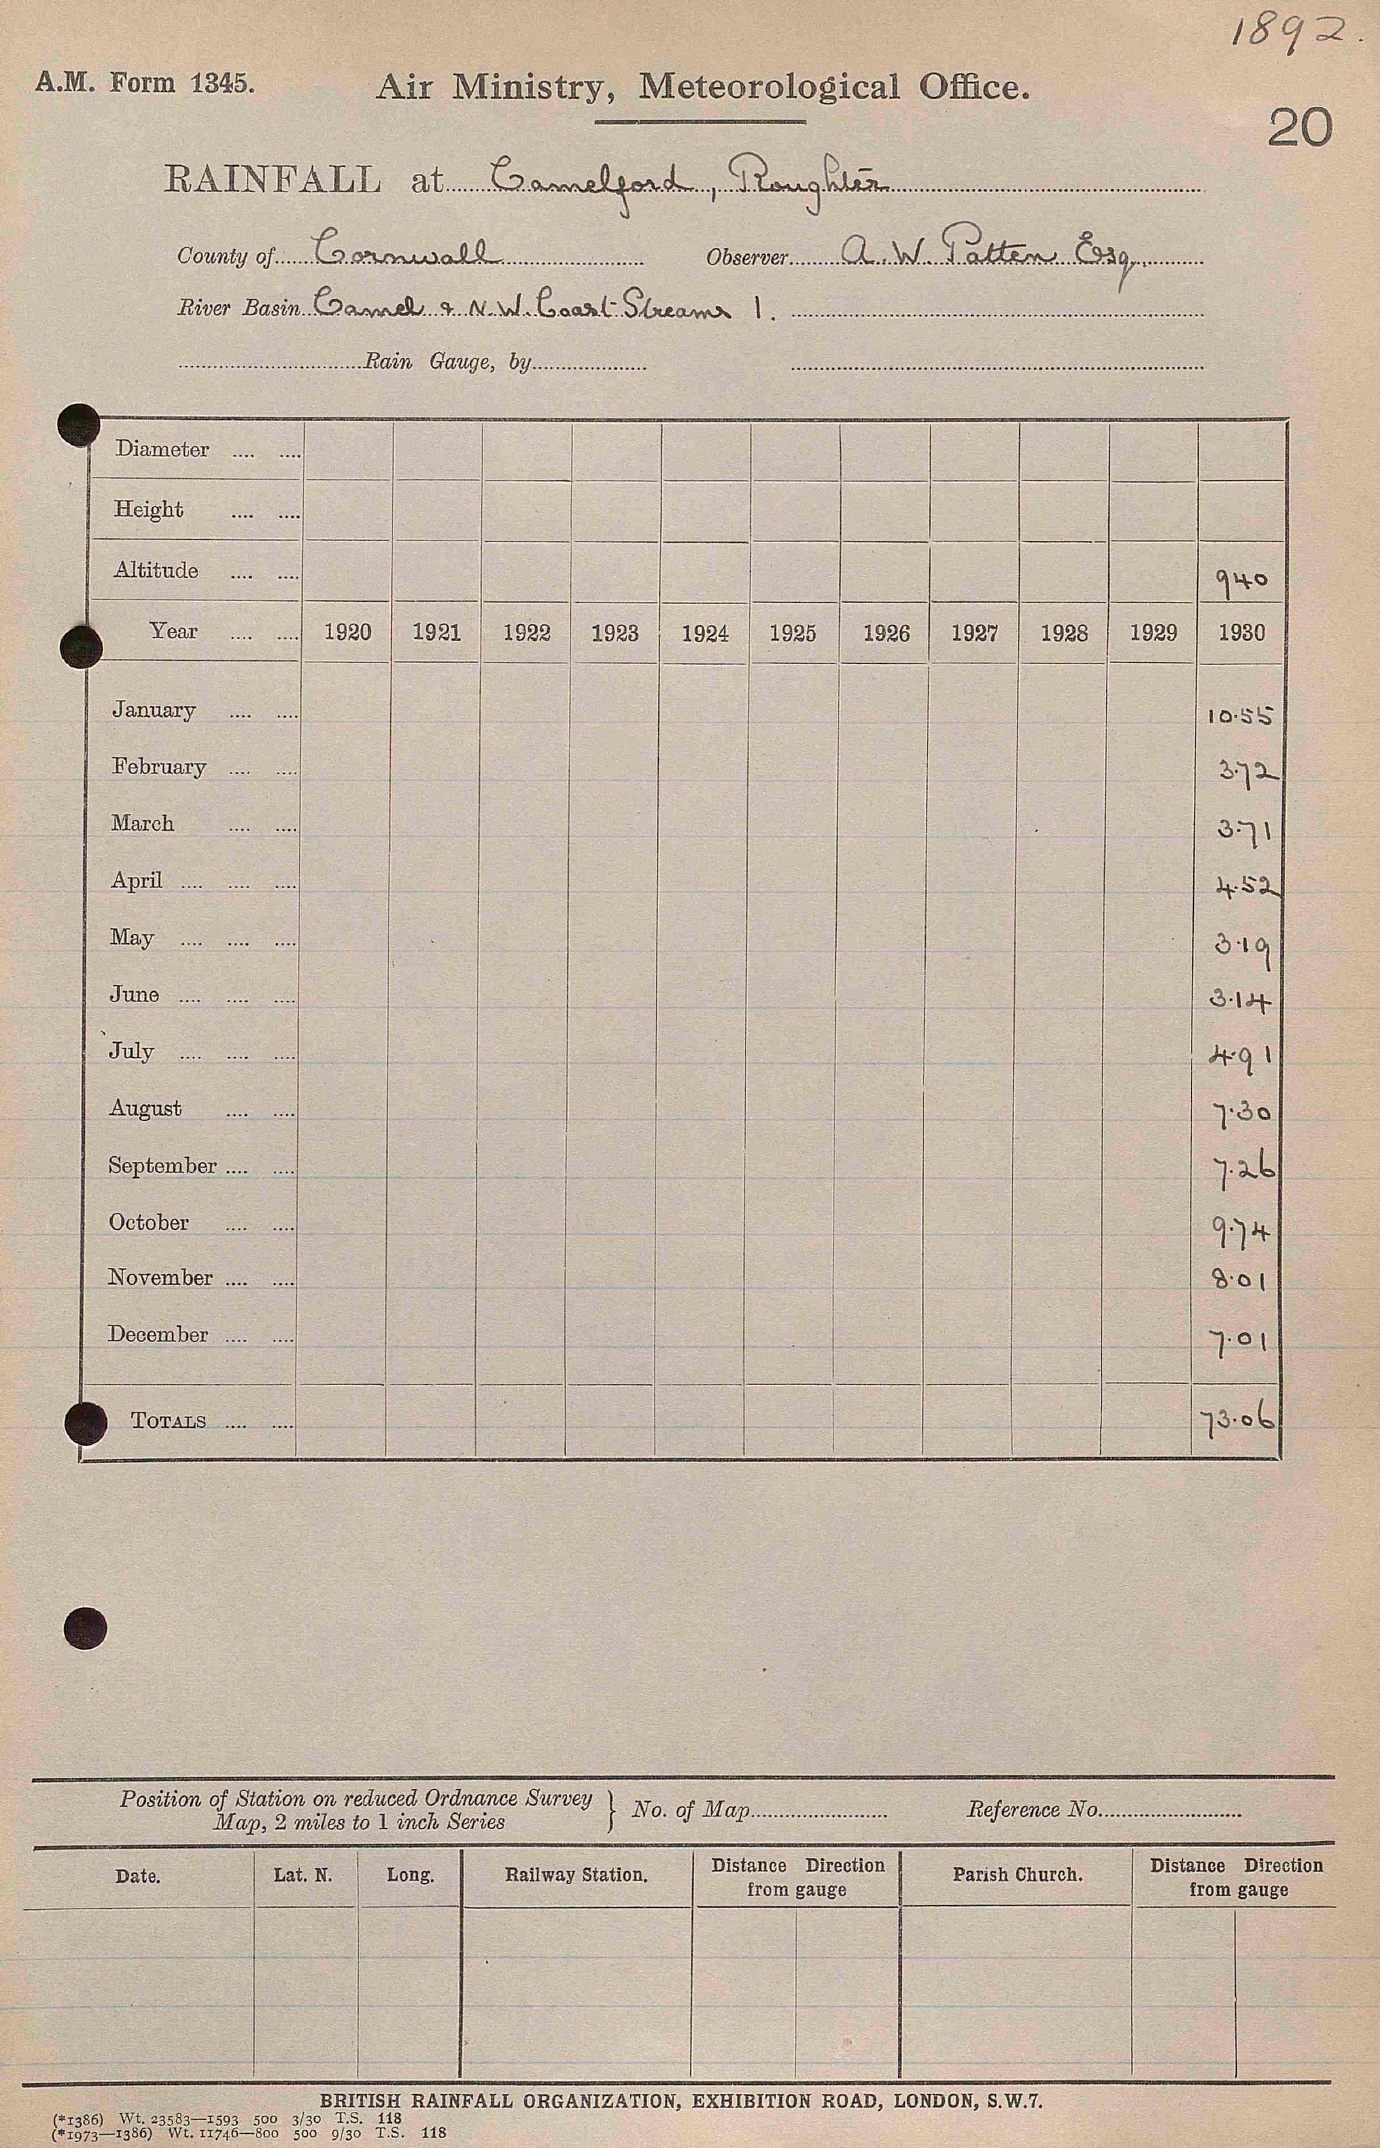 1892.
A.M. Form 1345. Air Ministry, Meteorological Office.
20
RAINFALL at Camelford, Roughter
County of Cornwall Observer A. W. Patten Esq.
River Basin Camel & N.W. Coast Streams 1.
Rain Gauge, by
Diameter
Height
Altitude 940
Year 1920 1921 1922 1923 1924 1925 1926 1927 1928 1929 1930
January 10.55
February 3.72
March 3.71
April 4.52
May 3.19
June 3.14
July 4.91
August 7.30
September 7.26
October 9.74
November 8.01
December 7.01
TOTALS 73.06
Position of Station on reduced Ordnance Survey
Map, 2 miles to 1 inch Series } No. of Map Reference No.
Date. Lat. N. Long. Railway Station. Distance Direction from gauge Parish Church. Distance Direction from gauge
BRITISH RAINFALL ORGANIZATION, EXHIBITION ROAD, LONDON, S.W.7.
(*1386) Wt. 23583—1593 500 3/30 T.S. 118
(*1973—1386) Wt. 11746—800 500 9/30 T.S. 118